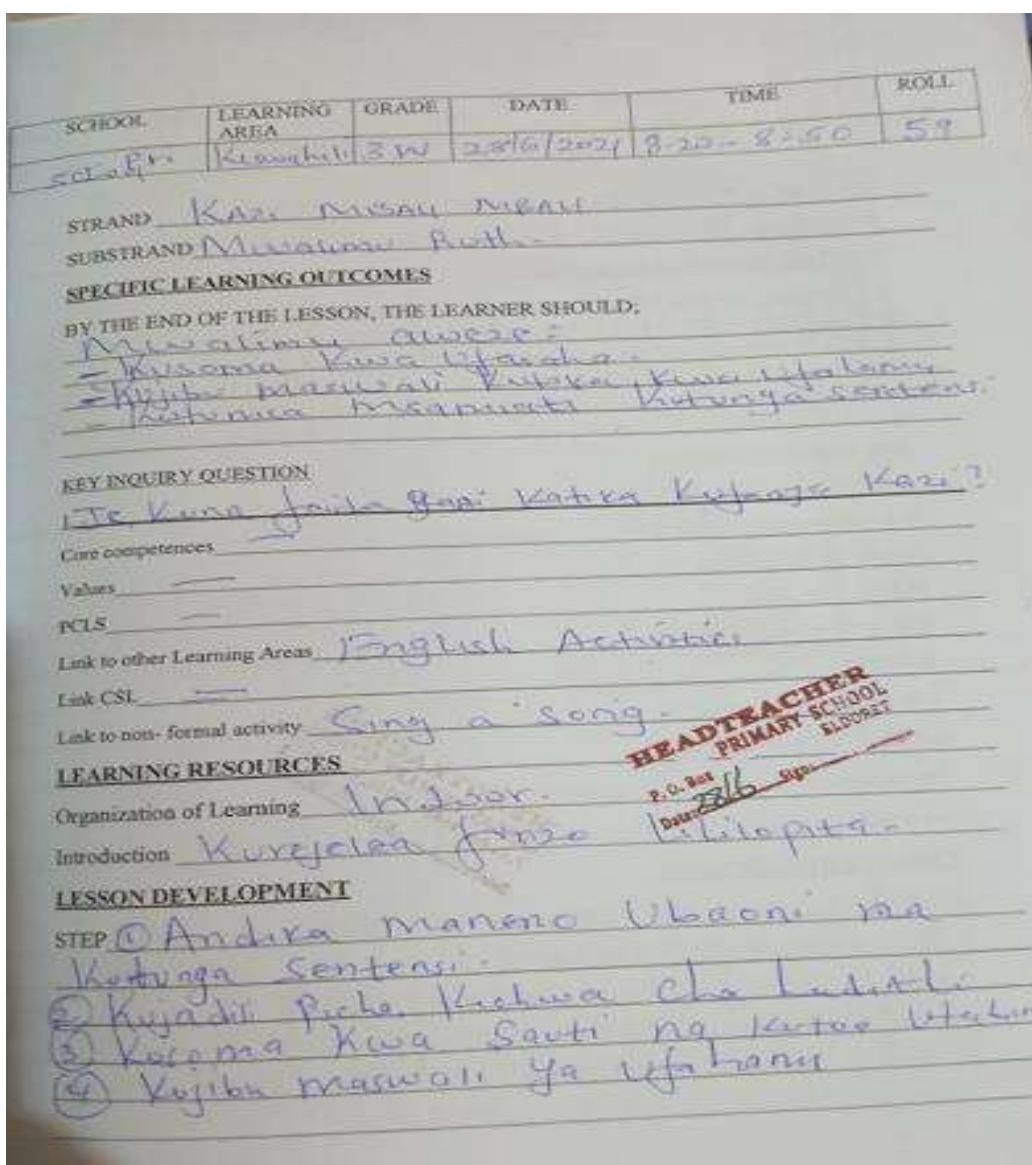 SCHOOL LEARNING AREA GRADE DATE TIME ROLL
Pri Kiswahili 3W 28/6/2021 8-20 - 8:50 59
STRAND KAZI MBALI MBALI
SUBSTRAND Mwalimu Ruth.
SPECIFIC LEARNING OUTCOMES
BY THE END OF THE LESSON, THE LEARNER SHOULD;
Mwalimu aweze:
- Kusoma kwa Ufasaha.
- Kujibu maswali kutoka kwa Ufahamu
- Kutumia msamiati kutunga sentensi.
KEY INQUIRY QUESTION
Je, Kuna faida gani Katika Kufanya Kazi?
Core competences
Values
PCLS
Link to other Learning Areas English Activities
Link CSL
Link to non- formal activity Sing a song.
HEADTEACHER
PRIMARY SCHOOL
ELDORET
LEARNING RESOURCES
P. O. Box
Organization of Learning Indoor.
Date: 28/6 Sign:
Introduction Kurejelea funzo lililopita.
LESSON DEVELOPMENT
STEP ① Andika maneno Ubaoni na
Kutunga Sentensi.
② Kujadili Picha, Kichwa cha
③ Kusoma Kwa Sauti na Kutoa
④ Kujibu maswali ya Ufahamu